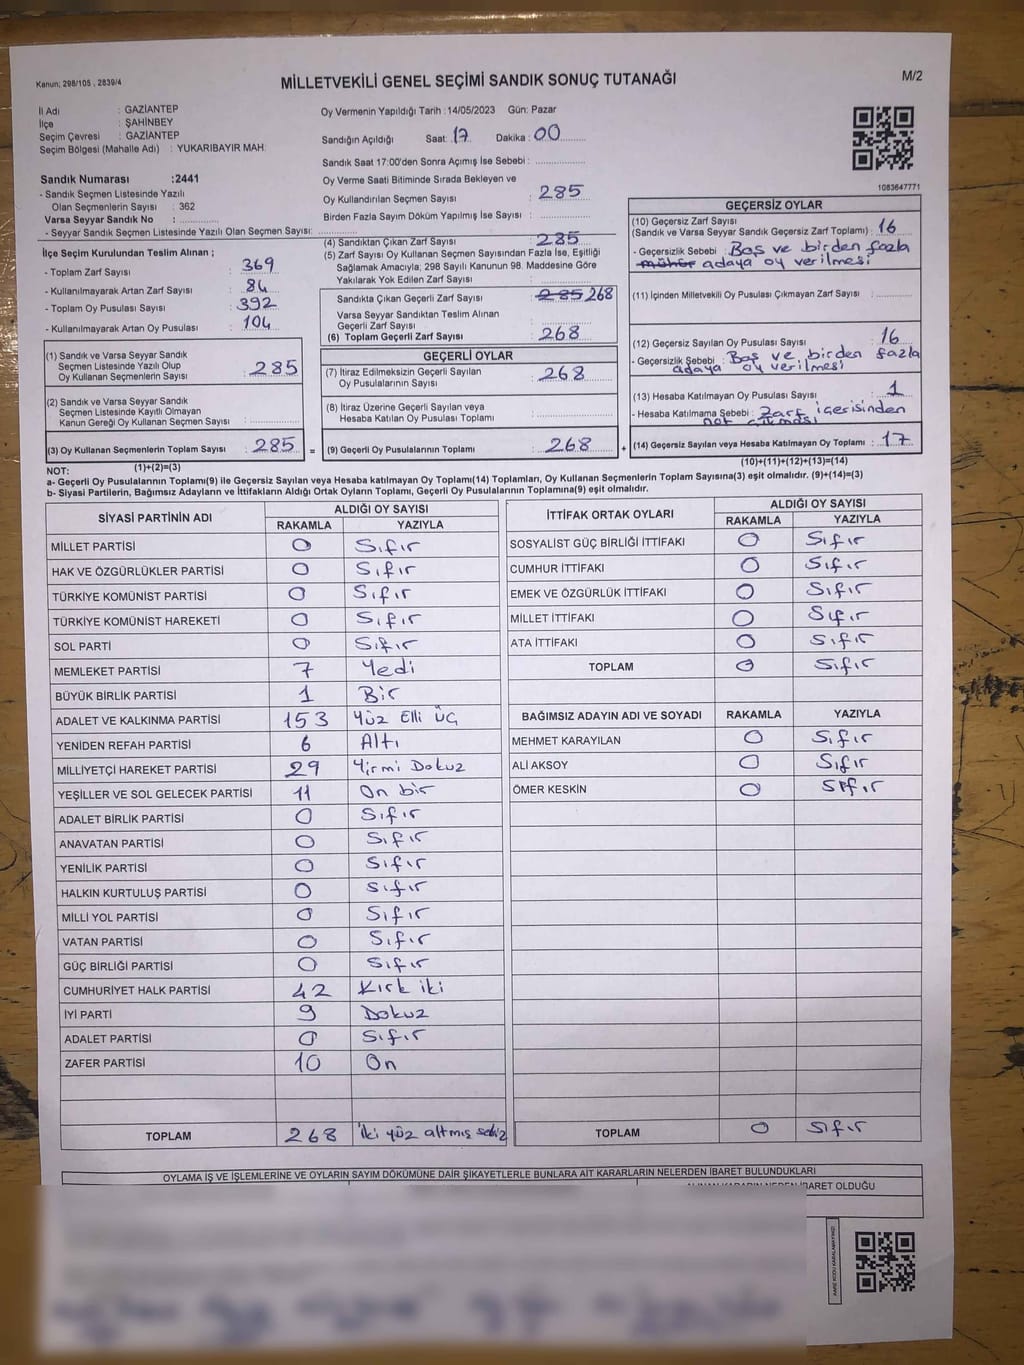 Kanun; 298/105 , 2839/4
MİLLETVEKİLİ GENEL SEÇİMİ SANDIK SONUÇ TUTANAĞI
M/2
İl Adı : GAZİANTEP
İlçe : ŞAHİNBEY
Seçim Çevresi : GAZİANTEP
Seçim Bölgesi (Mahalle Adı) : YUKARIBAYIR MAH
Sandık Numarası :2441
- Sandık Seçmen Listesinde Yazılı
Olan Seçmenlerin Sayısı : 362
Varsa Seyyar Sandık No : ..............
- Seyyar Sandık Seçmen Listesinde Yazılı Olan Seçmen Sayısı: ..............
Oy Vermenin Yapıldığı Tarih : 14/05/2023 Gün: Pazar
Sandığın Açıldığı Saat: 17 Dakika : 00
Sandık Saat 17:00'den Sonra Açımış İse Sebebi : ..............
Oy Verme Saati Bitiminde Sırada Bekleyen ve
Oy Kullandırılan Seçmen Sayısı : 285
Birden Fazla Sayım Döküm Yapılmış İse Sayısı : ..............
1083647771
İlçe Seçim Kurulundan Teslim Alınan ;
- Toplam Zarf Sayısı : 369
- Kullanılmayarak Artan Zarf Sayısı : 84
- Toplam Oy Pusulası Sayısı : 392
- Kullanılmayarak Artan Oy Pusulası : 104
(1) Sandık ve Varsa Seyyar Sandık
Seçmen Listesinde Yazılı Olup
Oy Kullanan Seçmenlerin Sayısı : 285
(2) Sandık ve Varsa Seyyar Sandık
Seçmen Listesinde Kayıtlı Olmayan
Kanun Gereği Oy Kullanan Seçmen Sayısı : ..............
(3) Oy Kullanan Seçmenlerin Toplam Sayısı : 285 =
(1)+(2)=(3)
(4) Sandıktan Çıkan Zarf Sayısı : 285
(5) Zarf Sayısı Oy Kullanan Seçmen Sayısından Fazla İse, Eşitliği
Sağlamak Amacıyla, 298 Sayılı Kanunun 98. Maddesine Göre
Yakılarak Yok Edilen Zarf Sayısı : ..............
Sandıkta Çıkan Geçerli Zarf Sayısı : 285 268
Varsa Seyyar Sandıktan Teslim Alınan
Geçerli Zarf Sayısı : ..............
(6) Toplam Geçerli Zarf Sayısı : 268
GEÇERLİ OYLAR
(7) İtiraz Edilmeksizin Geçerli Sayılan
Oy Pusulalarının Sayısı : 268
(8) İtiraz Üzerine Geçerli Sayılan veya
Hesaba Katılan Oy Pusulası Toplamı : ..............
(9) Geçerli Oy Pusulalarının Toplamı : 268 +
GEÇERSİZ OYLAR
(10) Geçersiz Zarf Sayısı
(Sandık ve Varsa Seyyar Sandık Geçersiz Zarf Toplamı) : 16
- Geçersizlik Sebebi : Boş ve birden fazla
mühür adaya oy verilmesi
(11) İçinden Milletvekili Oy Pusulası Çıkmayan Zarf Sayısı : ..............
(12) Geçersiz Sayılan Oy Pusulası Sayısı : 16
- Geçersizlik Sebebi : Boş ve birden fazla
adaya oy verilmesi
(13) Hesaba Katılmayan Oy Pusulası Sayısı : 1
- Hesaba Katılmama Sebebi : Zarf içerisinden
not çıkması
(14) Geçersiz Sayılan veya Hesaba Katılmayan Oy Toplamı : 17
(10)+(11)+(12)+(13)=(14)
NOT:
a- Geçerli Oy Pusulalarının Toplamı(9) ile Geçersiz Sayılan veya Hesaba katılmayan Oy Toplamı(14) Toplamları, Oy Kullanan Seçmenlerin Toplam Sayısına(3) eşit olmalıdır. (9)+(14)=(3)
b- Siyasi Partilerin, Bağımsız Adayların ve İttifakların Aldığı Ortak Oyların Toplamı, Geçerli Oy Pusulalarının Toplamına(9) eşit olmalıdır.
SİYASİ PARTİNİN ADI ALDIĞI OY SAYISI
RAKAMLA YAZIYLA
MİLLET PARTİSİ 0 Sıfır
HAK VE ÖZGÜRLÜKLER PARTİSİ 0 Sıfır
TÜRKİYE KOMÜNİST PARTİSİ 0 Sıfır
TÜRKİYE KOMÜNİST HAREKETİ 0 Sıfır
SOL PARTİ 0 Sıfır
MEMLEKET PARTİSİ 7 Yedi
BÜYÜK BİRLİK PARTİSİ 1 Bir
ADALET VE KALKINMA PARTİSİ 153 Yüz Elli Üç
YENİDEN REFAH PARTİSİ 6 Altı
MİLLİYETÇİ HAREKET PARTİSİ 29 Yirmi Dokuz
YEŞİLLER VE SOL GELECEK PARTİSİ 11 On bir
ADALET BİRLİK PARTİSİ 0 Sıfır
ANAVATAN PARTİSİ 0 Sıfır
YENİLİK PARTİSİ 0 Sıfır
HALKIN KURTULUŞ PARTİSİ 0 Sıfır
MİLLİ YOL PARTİSİ 0 Sıfır
VATAN PARTİSİ 0 Sıfır
GÜÇ BİRLİĞİ PARTİSİ 0 Sıfır
CUMHURİYET HALK PARTİSİ 42 Kırk iki
İYİ PARTİ 9 Dokuz
ADALET PARTİSİ 0 Sıfır
ZAFER PARTİSİ 10 On
TOPLAM 268 İki yüz altmış sekiz
İTTİFAK ORTAK OYLARI ALDIĞI OY SAYISI
RAKAMLA YAZIYLA
SOSYALİST GÜÇ BİRLİĞİ İTTİFAKI 0 Sıfır
CUMHUR İTTİFAKI 0 Sıfır
EMEK VE ÖZGÜRLÜK İTTİFAKI 0 Sıfır
MİLLET İTTİFAKI 0 Sıfır
ATA İTTİFAKI 0 Sıfır
TOPLAM 0 Sıfır
BAĞIMSIZ ADAYIN ADI VE SOYADI RAKAMLA YAZIYLA
MEHMET KARAYILAN 0 Sıfır
ALİ AKSOY 0 Sıfır
ÖMER KESKİN 0 Sıfır
TOPLAM 0 Sıfır
OYLAMA İŞ VE İŞLEMLERİNE VE OYLARIN SAYIM DÖKÜMÜNE DAİR ŞİKAYETLERLE BUNLARA AİT KARARLARIN NELERDEN İBARET BULUNDUKLARI
ALINAN KARARIN NEDEN İBARET OLDUĞU